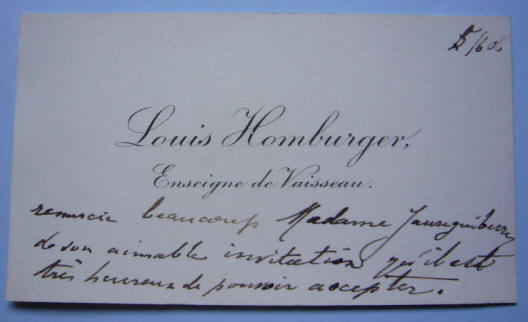 5/6 06
Louis Homburger,
Enseigne de Vaisseau.
remercie beaucoup Madame Jauréguiberry
de son aimable invitation qu'il est
très heureux de pouvoir accepter.